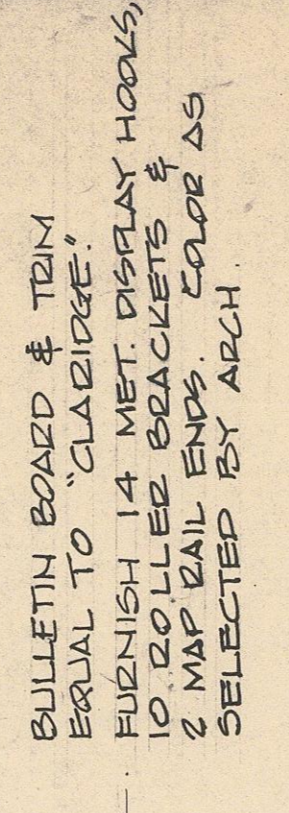 BULLETIN BOARD & TRIM
EQUAL TO "CLARIDGE."
FURNISH 14 MET. DISPLAY HOOKS,
10 ROLLER BRACKETS &
2 MAP RAIL ENDS. COLOR AS
SELECTED BY ARCH.